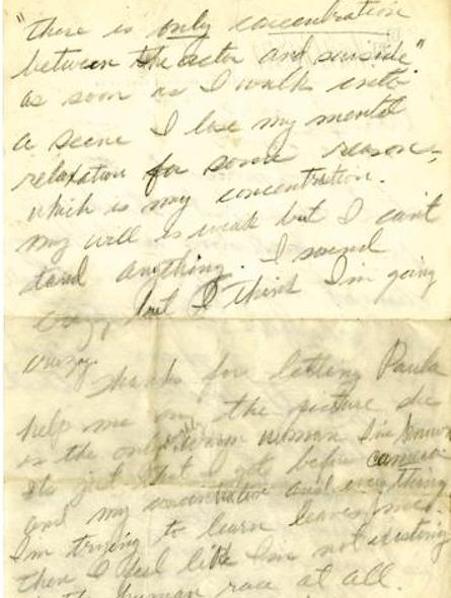 "there is only concentration
between the actor and suicide"
as soon as I walk into
a scene I lose my mental
relaxation for some reason,
which is my concentration.
my will is weak but I can't
stand anything. I sound
crazy, but I think I'm going
crazy.
Thanks for letting Paula
help me on the picture she
is the only really warm woman I've known
It's just that I get before camera
and my concentration and everything
I'm trying to learn leaves me.
then I feel like I'm not existing
in the human race at all.